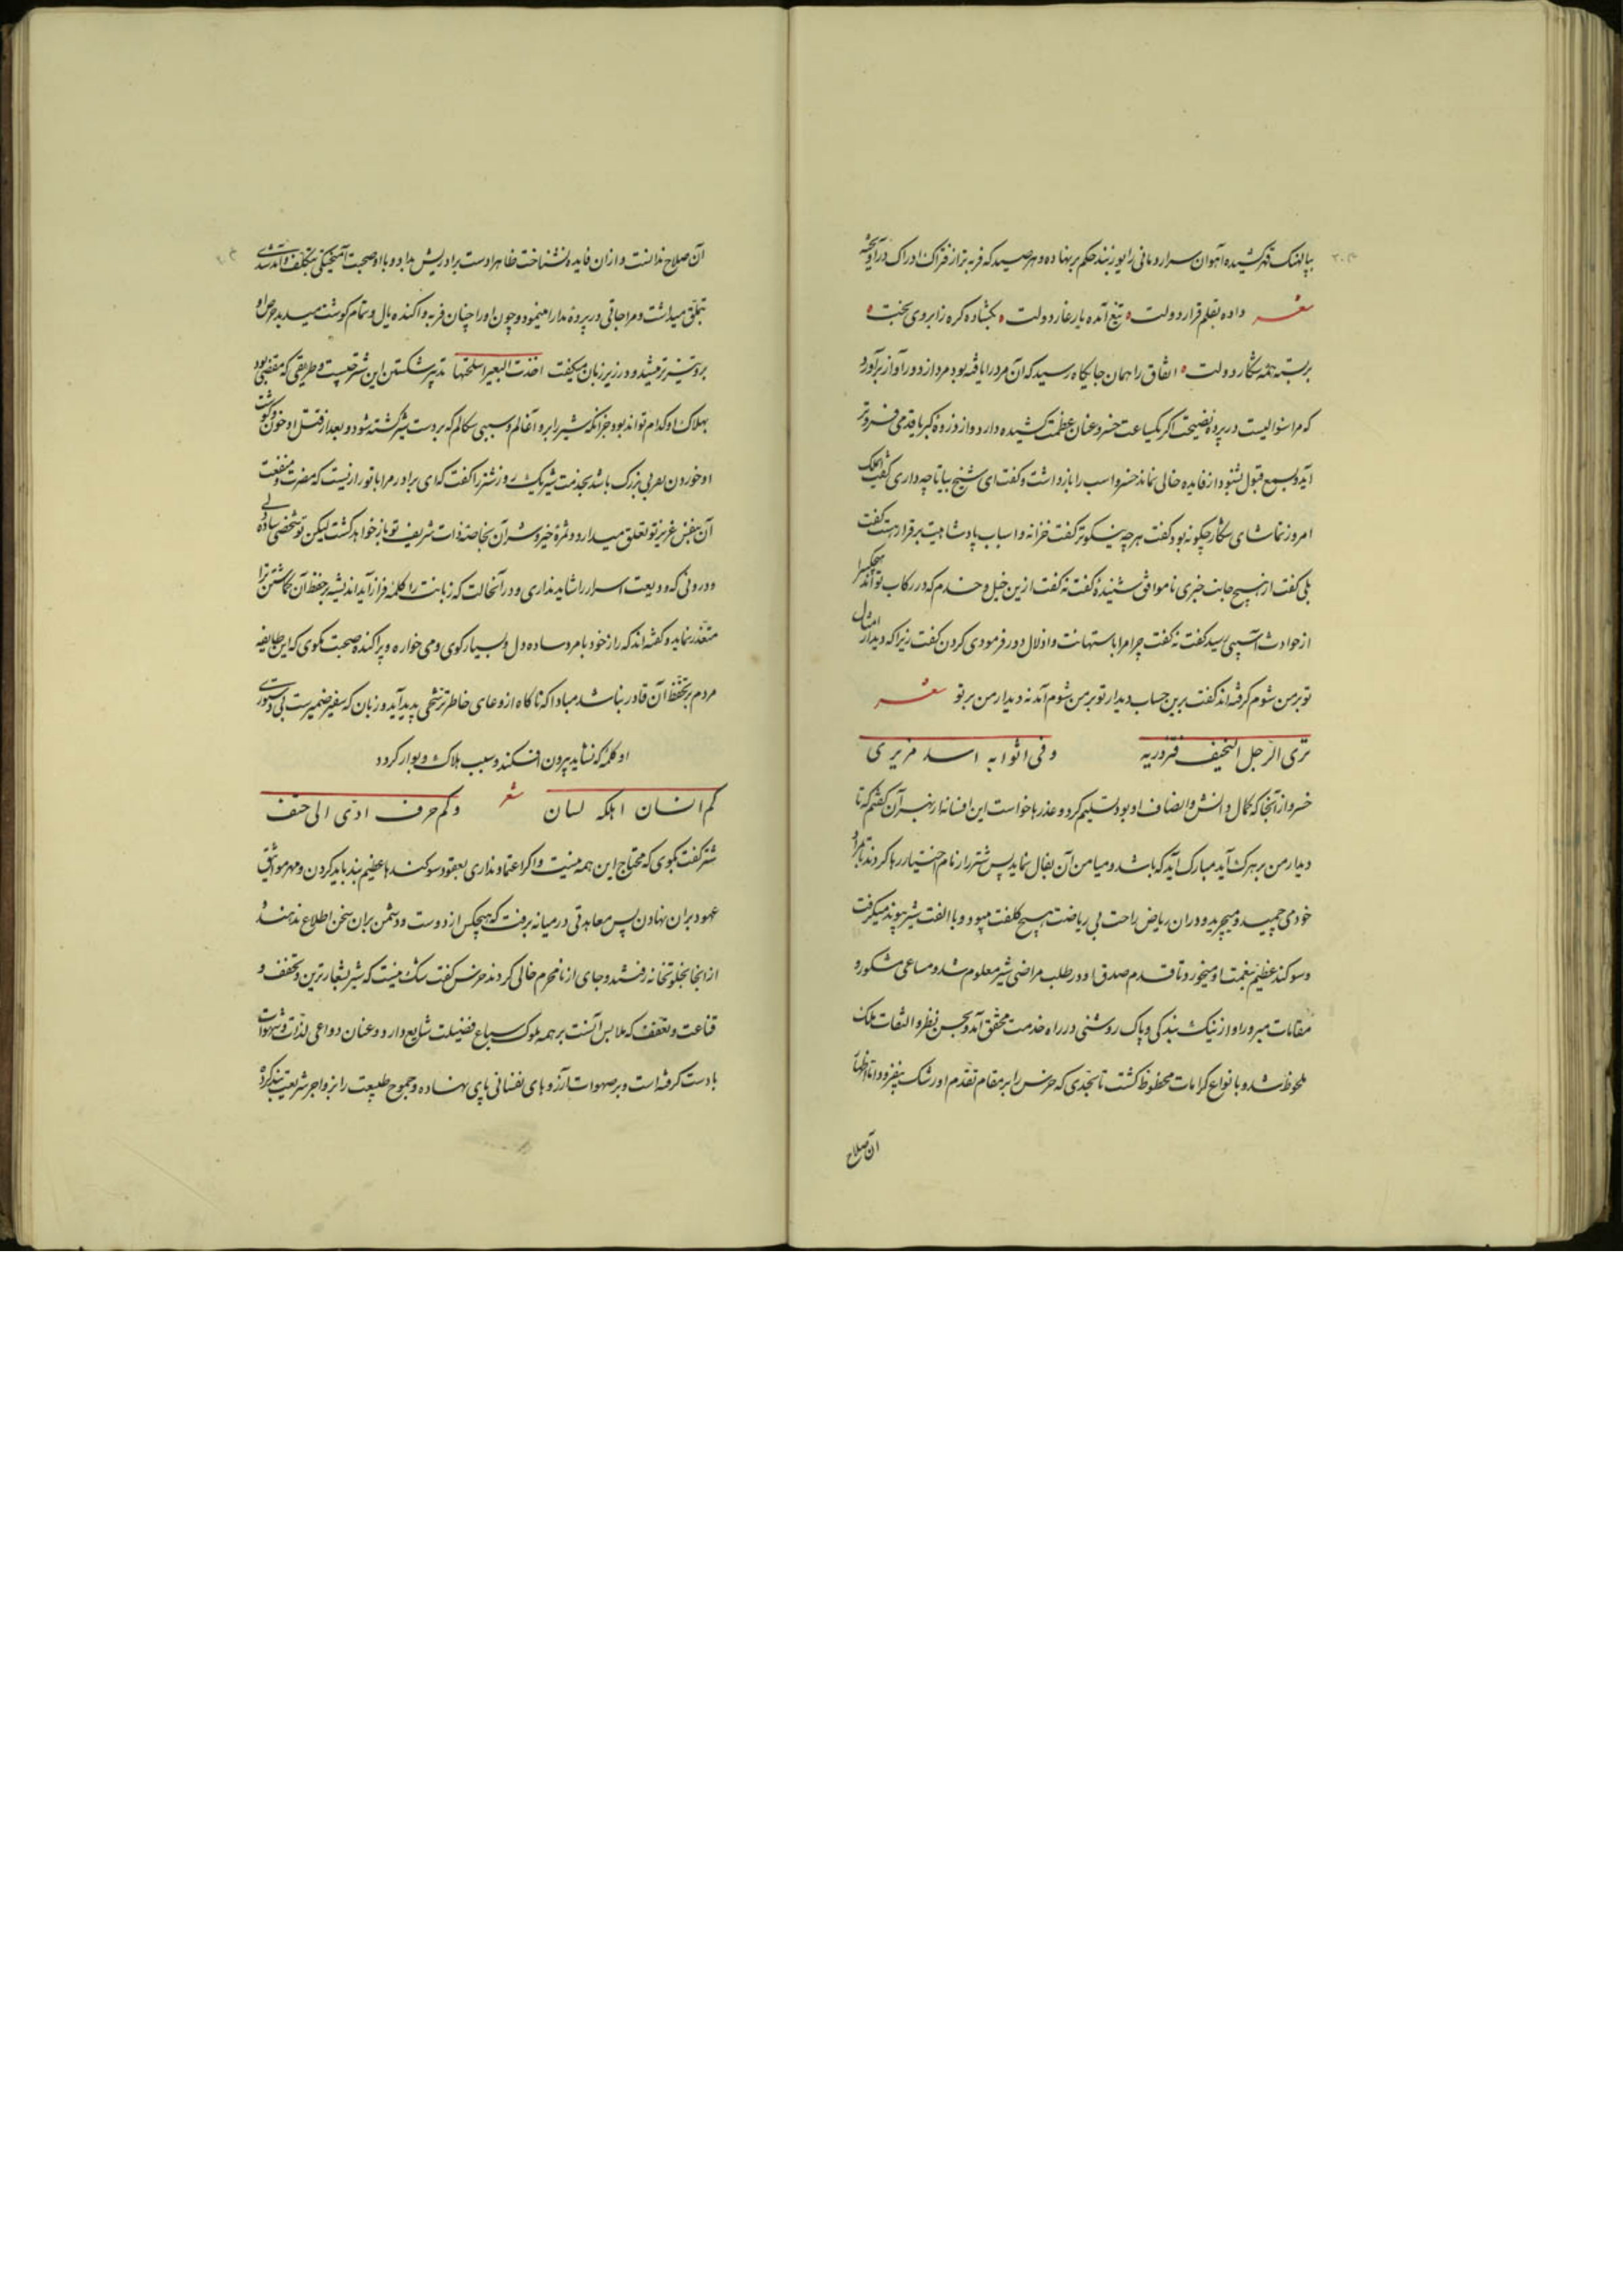 بپالهنک قهر کشیده آهوان سرار و مانی را یوزبند حکم برنهاده و هر صید که فربه‌تر از فتراک ادراک درآویخته
شعر داده بقلم قرار دولت ٥ تیغ آمده یار غار دولت ٥ بکشاده کره ز ابروی بخت ٥
بر بسته همه شکار دولت ٥ اتفاق را همان جایکاه رسید که آن مرد را یافته بود مرد از دور آواز برآورد
که مرا سئوالیست در پردهٔ نصیحت اکر یکساعت خسرو عنان عظمت کشیده دارد و از ذروهٔ کبریا قدمی فروتر
آید و بسمع قبول بشنود از فایده خالی نماند خسرو اسب را باز داشت و کفت ای شیخ بیا تا چه داری کفت ای ملک
امروز تماشای شکار چکونه بود کفت هرچه نیکوتر کفت خزانه و اسباب پادشاهیت برقرار هست کفت
بلی کفت از هیچ جانب خبری ناموافق شنیدهٔ کفت نه کفت ازین خیل و خدم که در رکاب تواند هیچکس را
از حوادث آسیبی رسید کفت نه کفت چرا مرا باستهانت و اذلال دور فرمودی کردن کفت زیرا که دیدار امثال
تو بر من شوم کرفته‌اند کفت برین حساب دیدار تو بر من شوم آمد نه دیدار من بر تو شعر
تری الرجل النحیف فتزدریه وفی اثوابه اسد مزیری
خسرو از آنجا که کمال دانش و انصاف او بود تسلیم کرد و عذرها خواست این افسانه از بهر آن کفتم که تا
دیدار من بر هرک آید مبارک آید که باشد و میامن آن بفال نماید پس شتر را زمام اختیار رها کردند تا بمراد
خود می‌چمید و میچرید و دران ریاض راحت بی ریاضت هیچ کلفت میبود و با الفت شیر پیوند میکرفت
و سوکند عظیم بنعمت او میخورد تا قدم صدق او در طلب مراضی شیر معلوم شد و مساعی مشکور و
مقامات مبرور او از نیک بندکی و پاک روشنی در راه خدمت محقق آمد و بحسن نظر و التفات ملک
ملحوظ شد و بانواع کرامات محظوظ کشت تا بحدی که خرس را بر مقام تقدم او رشک بیفزود و اما اظهار
آن صلاح
آن صلاح ندانست و از ان فایده نشناخت ظاهرا دست برادریش بداد و با او صحبت آمیختکی بتکلف و آمد شدی
بتملق میداشت و مراجاتی در پردهٔ مدارا مینمود و چون او را چنان فربه و آکنده یال و تمام کوشت میدید حرص او
برو تیزتر میشد و در زیر زبان میکفت اخذت البعیر اسلحتها تدبیر شکستن این شتر چیست و طریقی که مفضی بود
بهلاک او کدام تواند بود جز آنکه شیر را برو آغالم و سببی سکالم که بر دست شیر کشته شود و بعد از قتل او خون و کوشت
او خوردن بعربی بزرک باشد بخدمت شیر یک روز شتر را کفت که ای برادر مرا با تو رازیست که مضرت و منفعت
آن بنفس عزیز تو تعلق میدارد و ثمرهٔ خیر و شر آن بخاصهٔ ذات شریف تو باز خواهد کشت لیکن تو شخصی ساده دلی
و درونی که ودیعت اسرار را شاید نداری و در آنحالت که زبانت را کلمهٔ فراز آید اندیشه بر حفظ آن کماشتن ترا
متعذر نماید و کفته‌اند که راز خود با مرد ساده دل و بسیار کوی و می خواره و پراکنده صحبت مکوی که این طایفه
مردم بر تحفظ آن قادر نباشد مبادا که ناکاه از وعای خاطر ترشحی پدید آید و زبان که سفیر ضمیرست بی دستوری
او کلمهٔ که نشاید بیرون افکند و سبب هلاک و بوار کردد
کم انسان اهلکه لسان شعر وکم حرف ادّی الی حتف
شتر کفت بکوی که محتاج این همه نیست و اکر اعتماد نداری بعقود سوکندها عظیم بند باید کردن و مهر مواثیق
عهود بران نهادن پس معاهدتی در میانه برفت که هیچکس از دوست و دشمن بران سخن اطلاع ندهند
از انجا بخلوتخانه رفتند و جای از نامحرم خالی کردند خرس کفت شک نیست که شیر بشعار ترین و تخفف و
قناعت و تعفف که ملابس آنست بر همه ملوک سباع فضیلت شایع دارد و عنان دواعی لذات و شهوات
با دست کرفته است و بر صهوات آرزوهای نفسانی پای نهاده و جموح طبیعت را بزواجر شریعت بند کرده